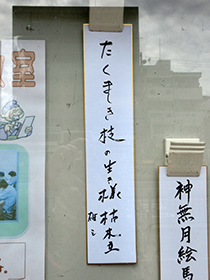 たくましき枝の生き様枯木立
神無月絵馬
室